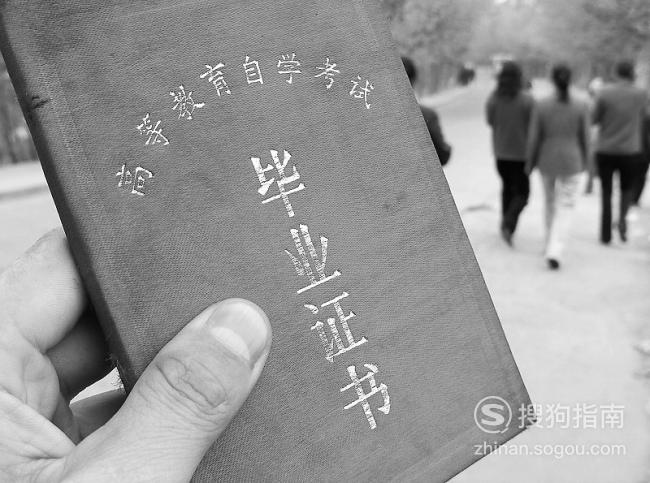 高等教育自学考试
毕业证书
搜狗指南
zhinan.sogou.com